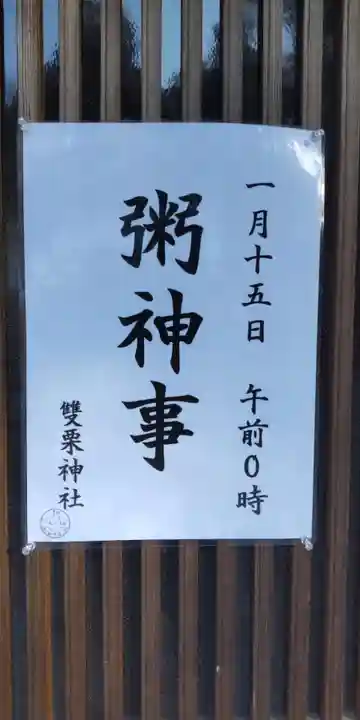 一月十五日 午前0時
粥神事
雙栗神社